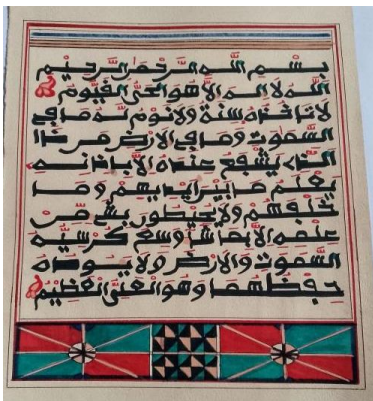 بِسْمِ اللَّهِ الرَّحْمَٰنِ الرَّحِيمِ
اللَّهُ لَا إِلَٰهَ إِلَّا هُوَ الْحَيُّ الْقَيُّومُ
لَا تَأْخُذُهُ سِنَةٌ وَلَا نَوْمٌ لَهُ مَا فِي
السَّمَٰوَٰتِ وَمَا فِي الْأَرْضِ مَن ذَا
الَّذِي يَشْفَعُ عِندَهُ إِلَّا بِإِذْنِهِ
يَعْلَمُ مَا بَيْنَ أَيْدِيهِمْ وَمَا
خَلْفَهُمْ وَلَا يُحِيطُونَ بِشَيْءٍ مِّنْ
عِلْمِهِ إِلَّا بِمَا شَاءَ وَسِعَ كُرْسِيُّهُ
السَّمَٰوَٰتِ وَالْأَرْضَ وَلَا يَـُٔودُهُ
حِفْظُهُمَا وَهُوَ الْعَلِيُّ الْعَظِيمُ